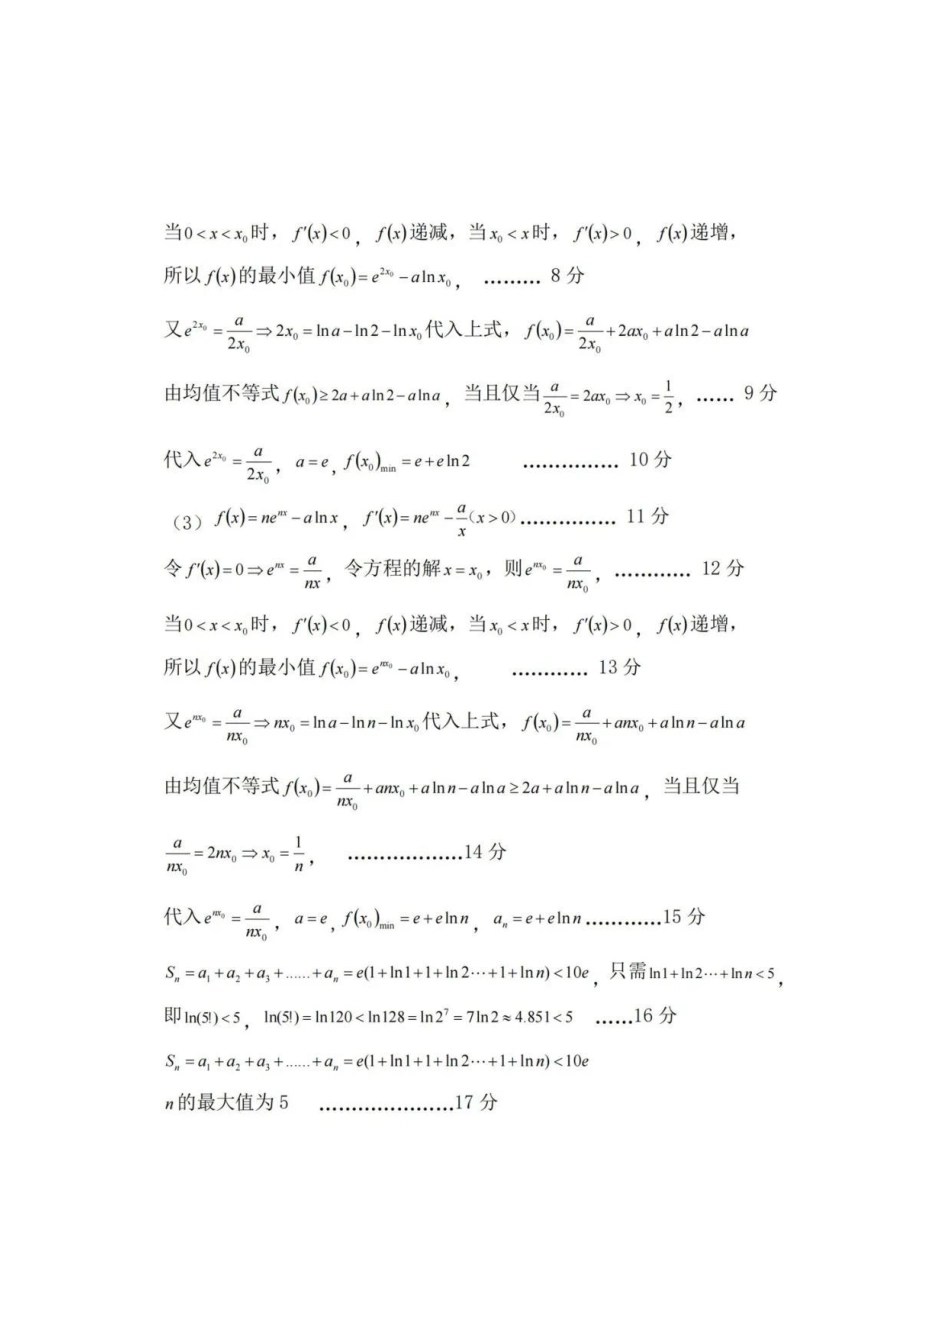 当0<x<x₀时，f′(x)<0，f(x)递减，当x₀<x时，f′(x)>0，f(x)递增，
所以f(x)的最小值f(x₀)=e^{2x₀}−alnx₀，………8分
又e^{2x₀}=\frac{a}{2x₀}⇒2x₀=lna−ln2−lnx₀代入上式，f(x₀)=\frac{a}{2x₀}+2ax₀+aln2−alna
由均值不等式f(x₀)≥2a+aln2−alna，当且仅当\frac{a}{2x₀}=2ax₀⇒x₀=\frac{1}{2}，……9分
代入e^{2x₀}=\frac{a}{2x₀}，a=e，f(x₀)_{min}=e+eln2 ……………10分
（3）f(x)=ne^{nx}−alnx，f′(x)=ne^{nx}−\frac{a}{x}（x>0）……………11分
令f′(x)=0⇒e^{nx}=\frac{a}{nx}，令方程的解x=x₀，则e^{nx₀}=\frac{a}{nx₀}，…………12分
当0<x<x₀时，f′(x)<0，f(x)递减，当x₀<x时，f′(x)>0，f(x)递增，
所以f(x)的最小值f(x₀)=e^{nx₀}−alnx₀，…………13分
又e^{nx₀}=\frac{a}{nx₀}⇒nx₀=lna−lnn−lnx₀代入上式，f(x₀)=\frac{a}{nx₀}+anx₀+alnn−alna
由均值不等式f(x₀)=\frac{a}{nx₀}+anx₀+alnn−alna≥2a+alnn−alna，当且仅当
\frac{a}{nx₀}=2nx₀⇒x₀=\frac{1}{n}，………………14分
代入e^{nx₀}=\frac{a}{nx₀}，a=e，f(x₀)_{min}=e+elnn，aₙ=e+elnn…………15分
Sₙ=a₁+a₂+a₃+......+aₙ=e(1+ln1+1+ln2⋯+1+lnn)<10e，只需ln1+ln2⋯+lnn<5，
即ln(5!)<5，ln(5!)=ln120<ln128=ln2⁷=7ln2≈4.851<5 ……16分
Sₙ=a₁+a₂+a₃+......+aₙ=e(1+ln1+1+ln2⋯+1+lnn)<10e
n的最大值为5 …………………17分